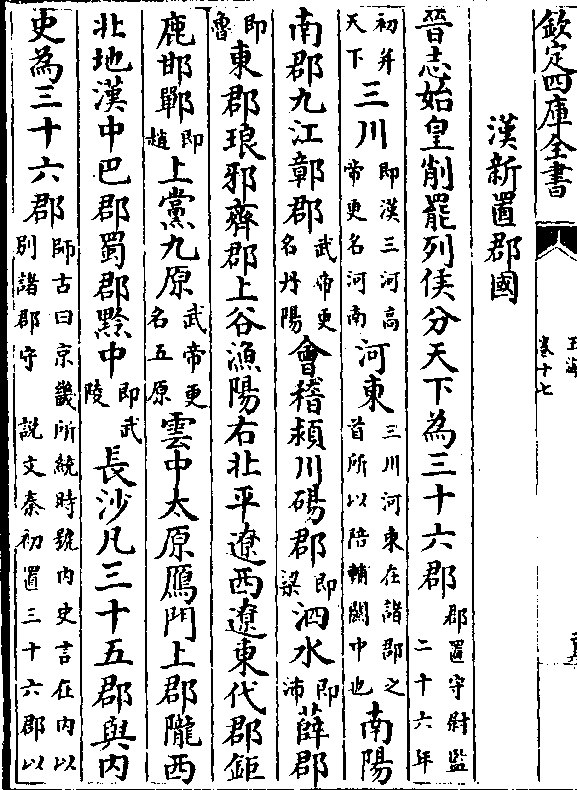 欽定四庫全書
玉海
卷十七
漢新置郡國
晉志始皇削罷列侯分天下為三十六郡郡置守尉監二十六年
初并天下三川即漢三河高帝更名河南河東三川河東在諸郡之首所以陪輔關中也南陽
南郡九江鄣郡武帝更名丹陽會稽潁川碭郡即梁泗水即沛薛郡
即魯東郡琅邪齊郡上谷漁陽右北平遼西遼東代郡鉅
鹿邯鄲即趙上黨九原武帝更名五原雲中太原鴈門上郡隴西
北地漢中巴郡蜀郡黔中即武陵長沙凡三十五郡與內
史為三十六郡師古曰京畿所統時號內史言在內以別諸郡守 說文秦初置三十六郡以